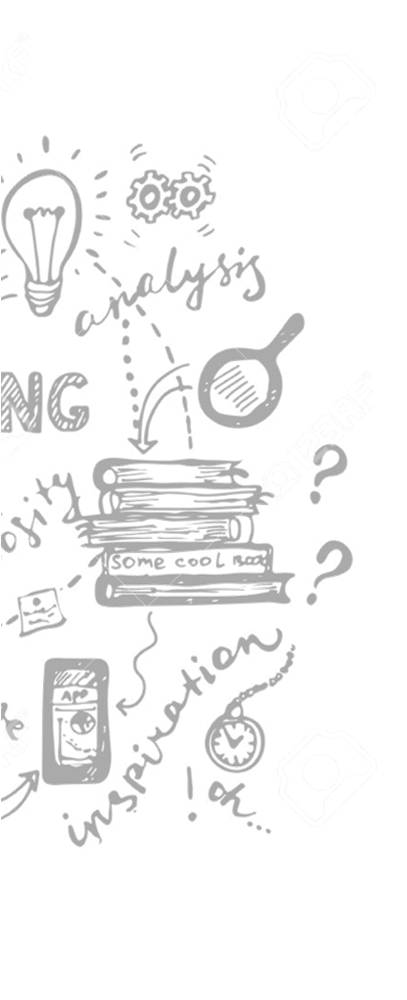 analysis
NG
osity
SOME COOL BOOK
APP
inspiration
! oh...
? ?